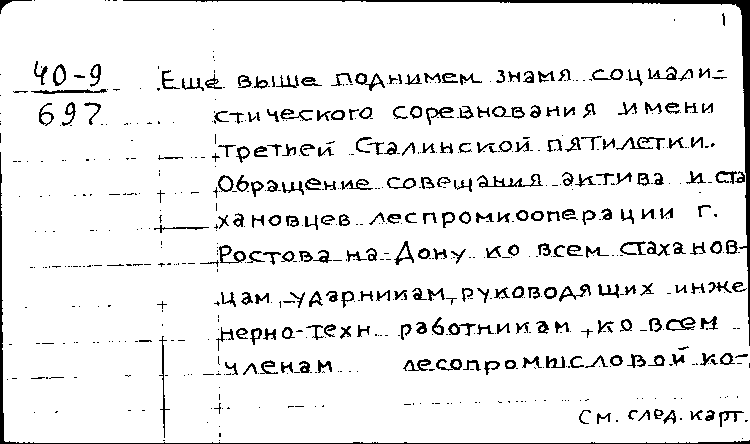 1
40-9 Еще выше поднимем знамя социали-
697 стического соревнования имени
третьей Сталинской пятилетки.
Обращение совещания актива и ста
хановцев леспромкооперации г.
Ростова-на-Дону ко всем стаханов-
цам, ударникам, руководящих инже
нерно-техн. работникам, ко всем
членам лесопромысловой ко-
См. след. карт.